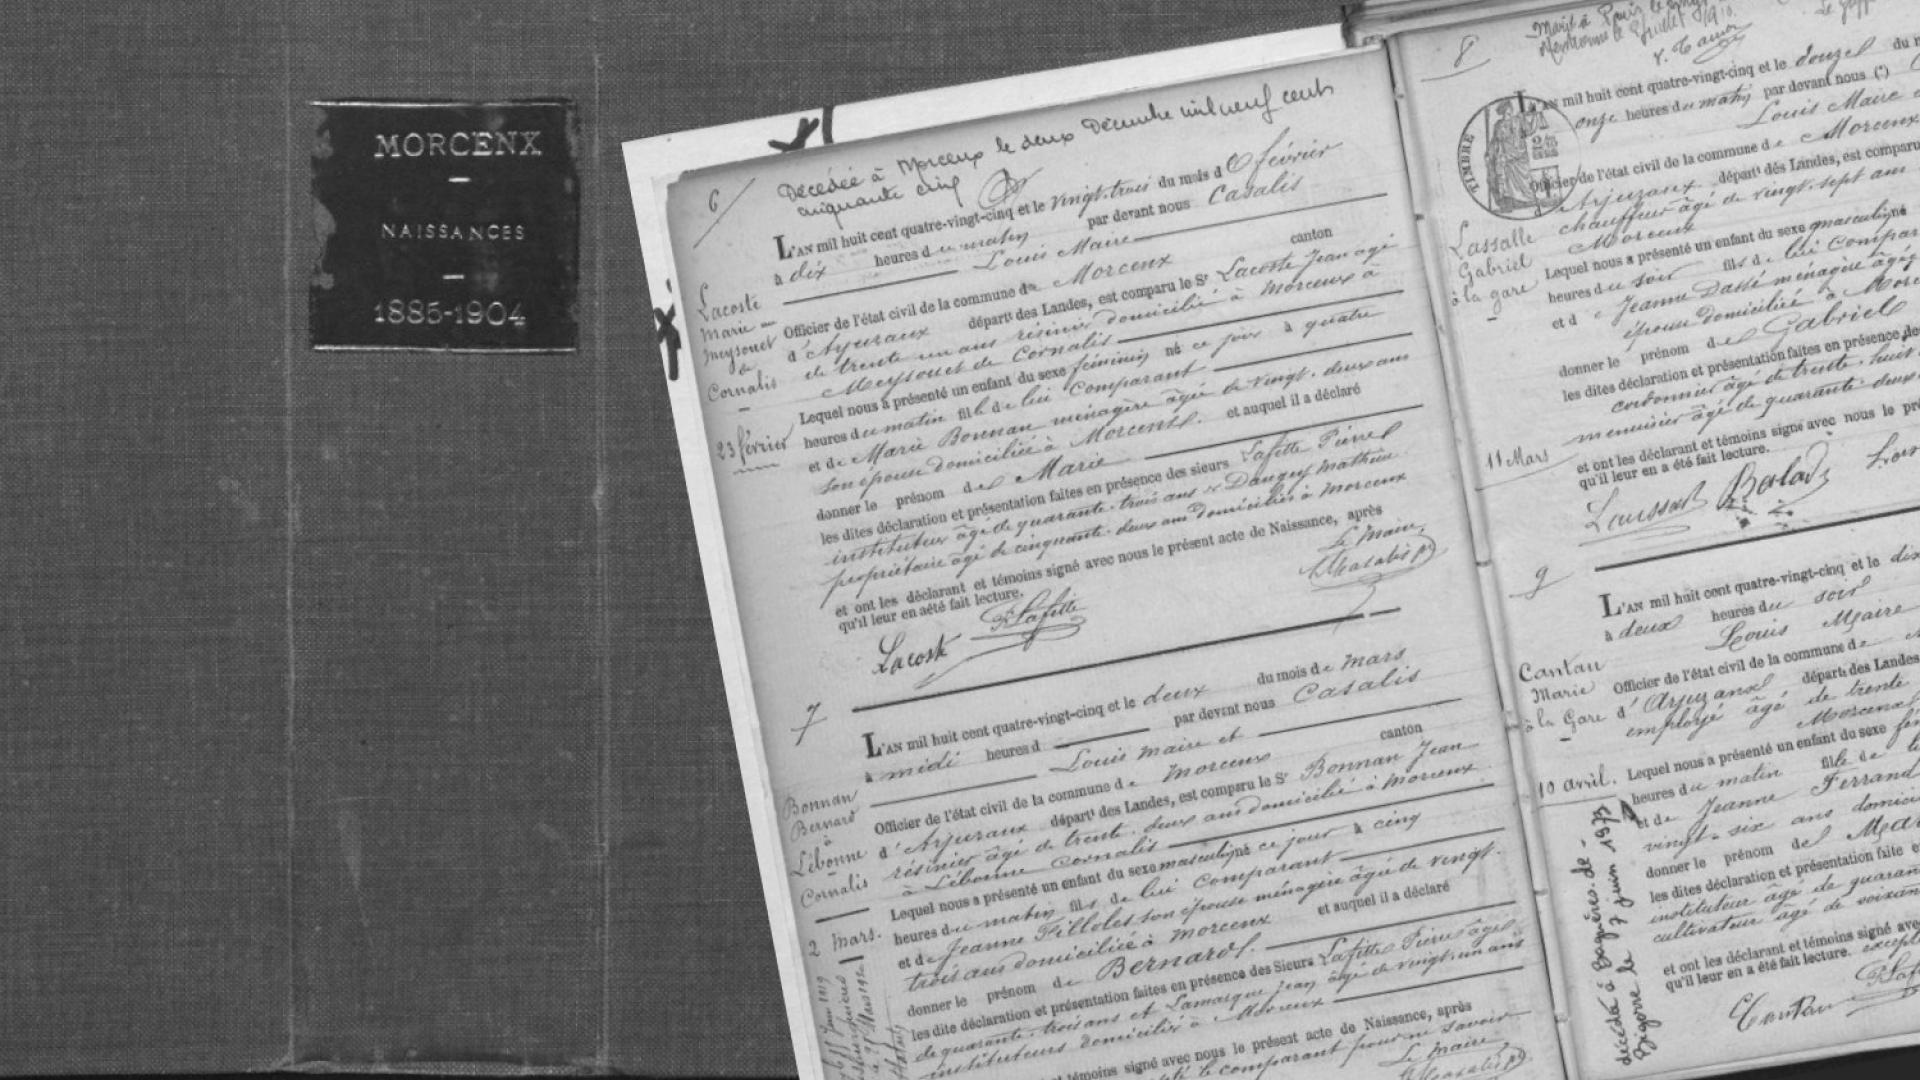 MORCENX
NAISSANCES
1885-1904
6
Décédée à Morcenx le deux Décembre mil neuf cent
cinquante cinq
L'AN mil huit cent quatre-vingt-cinq et le vingt-trois du mois d février
à dix heures du matin par devant nous Casalis
Louis Maire
Officier de l'état civil de la commune de Morcenx canton
d'Arjuzanx départt des Landes, est comparu le Sr Lacoste Jean âgé
de trente un ans résinier domicilié à Morcenx à
Meysouet de Cornalis
Lequel nous a présenté un enfant du sexe féminin né ce jour à quatre
heures du matin fille de lui Comparant
et de Marie Bonnan ménagère âgée de vingt-deux ans
son épouse domiciliée à Morcenx. et auquel il a déclaré
donner le prénom de Marie
les dites déclaration et présentation faites en présence des sieurs Lafitte Pierre
instituteur âgé de quarante-trois ans et Mathieu
propriétaire âgé de cinquante-deux ans domiciliés à Morcenx
et ont les déclarant et témoins signé avec nous le présent acte de Naissance, après
qu'il leur en a été fait lecture.
Le Maire
Lacoste
P. Lafitte
Casalis
Lacoste
Marie
Meysouet
de
Cornalis
23 février
7
L'AN mil huit cent quatre-vingt-cinq et le deux du mois de mars
à midi heures d par devant nous Casalis
Louis maire et
Officier de l'état civil de la commune de Morcenx canton
d'Arjuzanx départt des Landes, est comparu le Sr Bonnan Jean
résinier âgé de trente-deux ans domicilié à Morcenx
à Lébonne Cornalis
Lequel nous a présenté un enfant du sexe masculin né ce jour à cinq
heures du matin fils de lui Comparant
et de Jeanne Filloles son épouse ménagère âgée de vingt-
trois ans domiciliée à Morcenx et auquel il a déclaré
donner le prénom de Bernard.
les dite déclaration et présentation faites en présence des Sieurs Lafitte Pierre âgé
de quarante-trois ans et Lamarque Jean âgé de vingt-un ans
instituteurs domiciliés à Morcenx
témoins signé avec nous le présent acte de Naissance, après
le comparant pour ne savoir
Le Maire
Casalis
Bonnan
Bernard
à
Lébonne
Cornalis
2 mars.
8
L'AN mil huit cent quatre-vingt-cinq et le douze du
onze heures du matin par devant nous (*)
Louis Maire
TIMBRE
Officier de l'état civil de la commune de Morcenx
Arjuzanx départt des Landes, est comparu
chauffeur âgé de vingt-sept ans
Morcenx
Lequel nous a présenté un enfant du sexe masculin né
heures du soir fils de lui Compar
et de Jeanne Dassé ménagère âgée
épouse domiciliée à Morc
donner le prénom de Gabriel
les dites déclaration et présentation faites en présence des
cordonnier âgé de trente-huit
menuisier âgé de quarante-deux
et ont les déclarant et témoins signé avec nous le pré
qu'il leur en a été fait lecture.
Lassalle
Gabriel
à la gare
11 Mars
9
L'AN mil huit cent quatre-vingt-cinq et le dix
à deux heures du soir
Louis Maire
Officier de l'état civil de la commune de
d'Arjuzanx départt des Landes
employé âgé de trente
Morcenx
Lequel nous a présenté un enfant du sexe fé
heures du matin fille de
et de Jeanne Ferrand
vingt-six ans domici
donner le prénom de Mar
les dites déclaration et présentation faite
instituteur âgé de quaran
cultivateur âgé de soixan
et ont les déclarant et témoins signé avec
qu'il leur en a été fait lecture. excepté
Cantau
Cantau
Marie
à la Gare
10 avril.
décédé à Bagnères-de-
Bigorre le 7 juin 1973